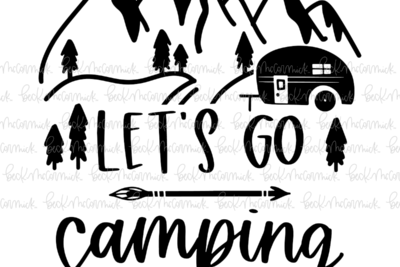 LET'S GO
camping